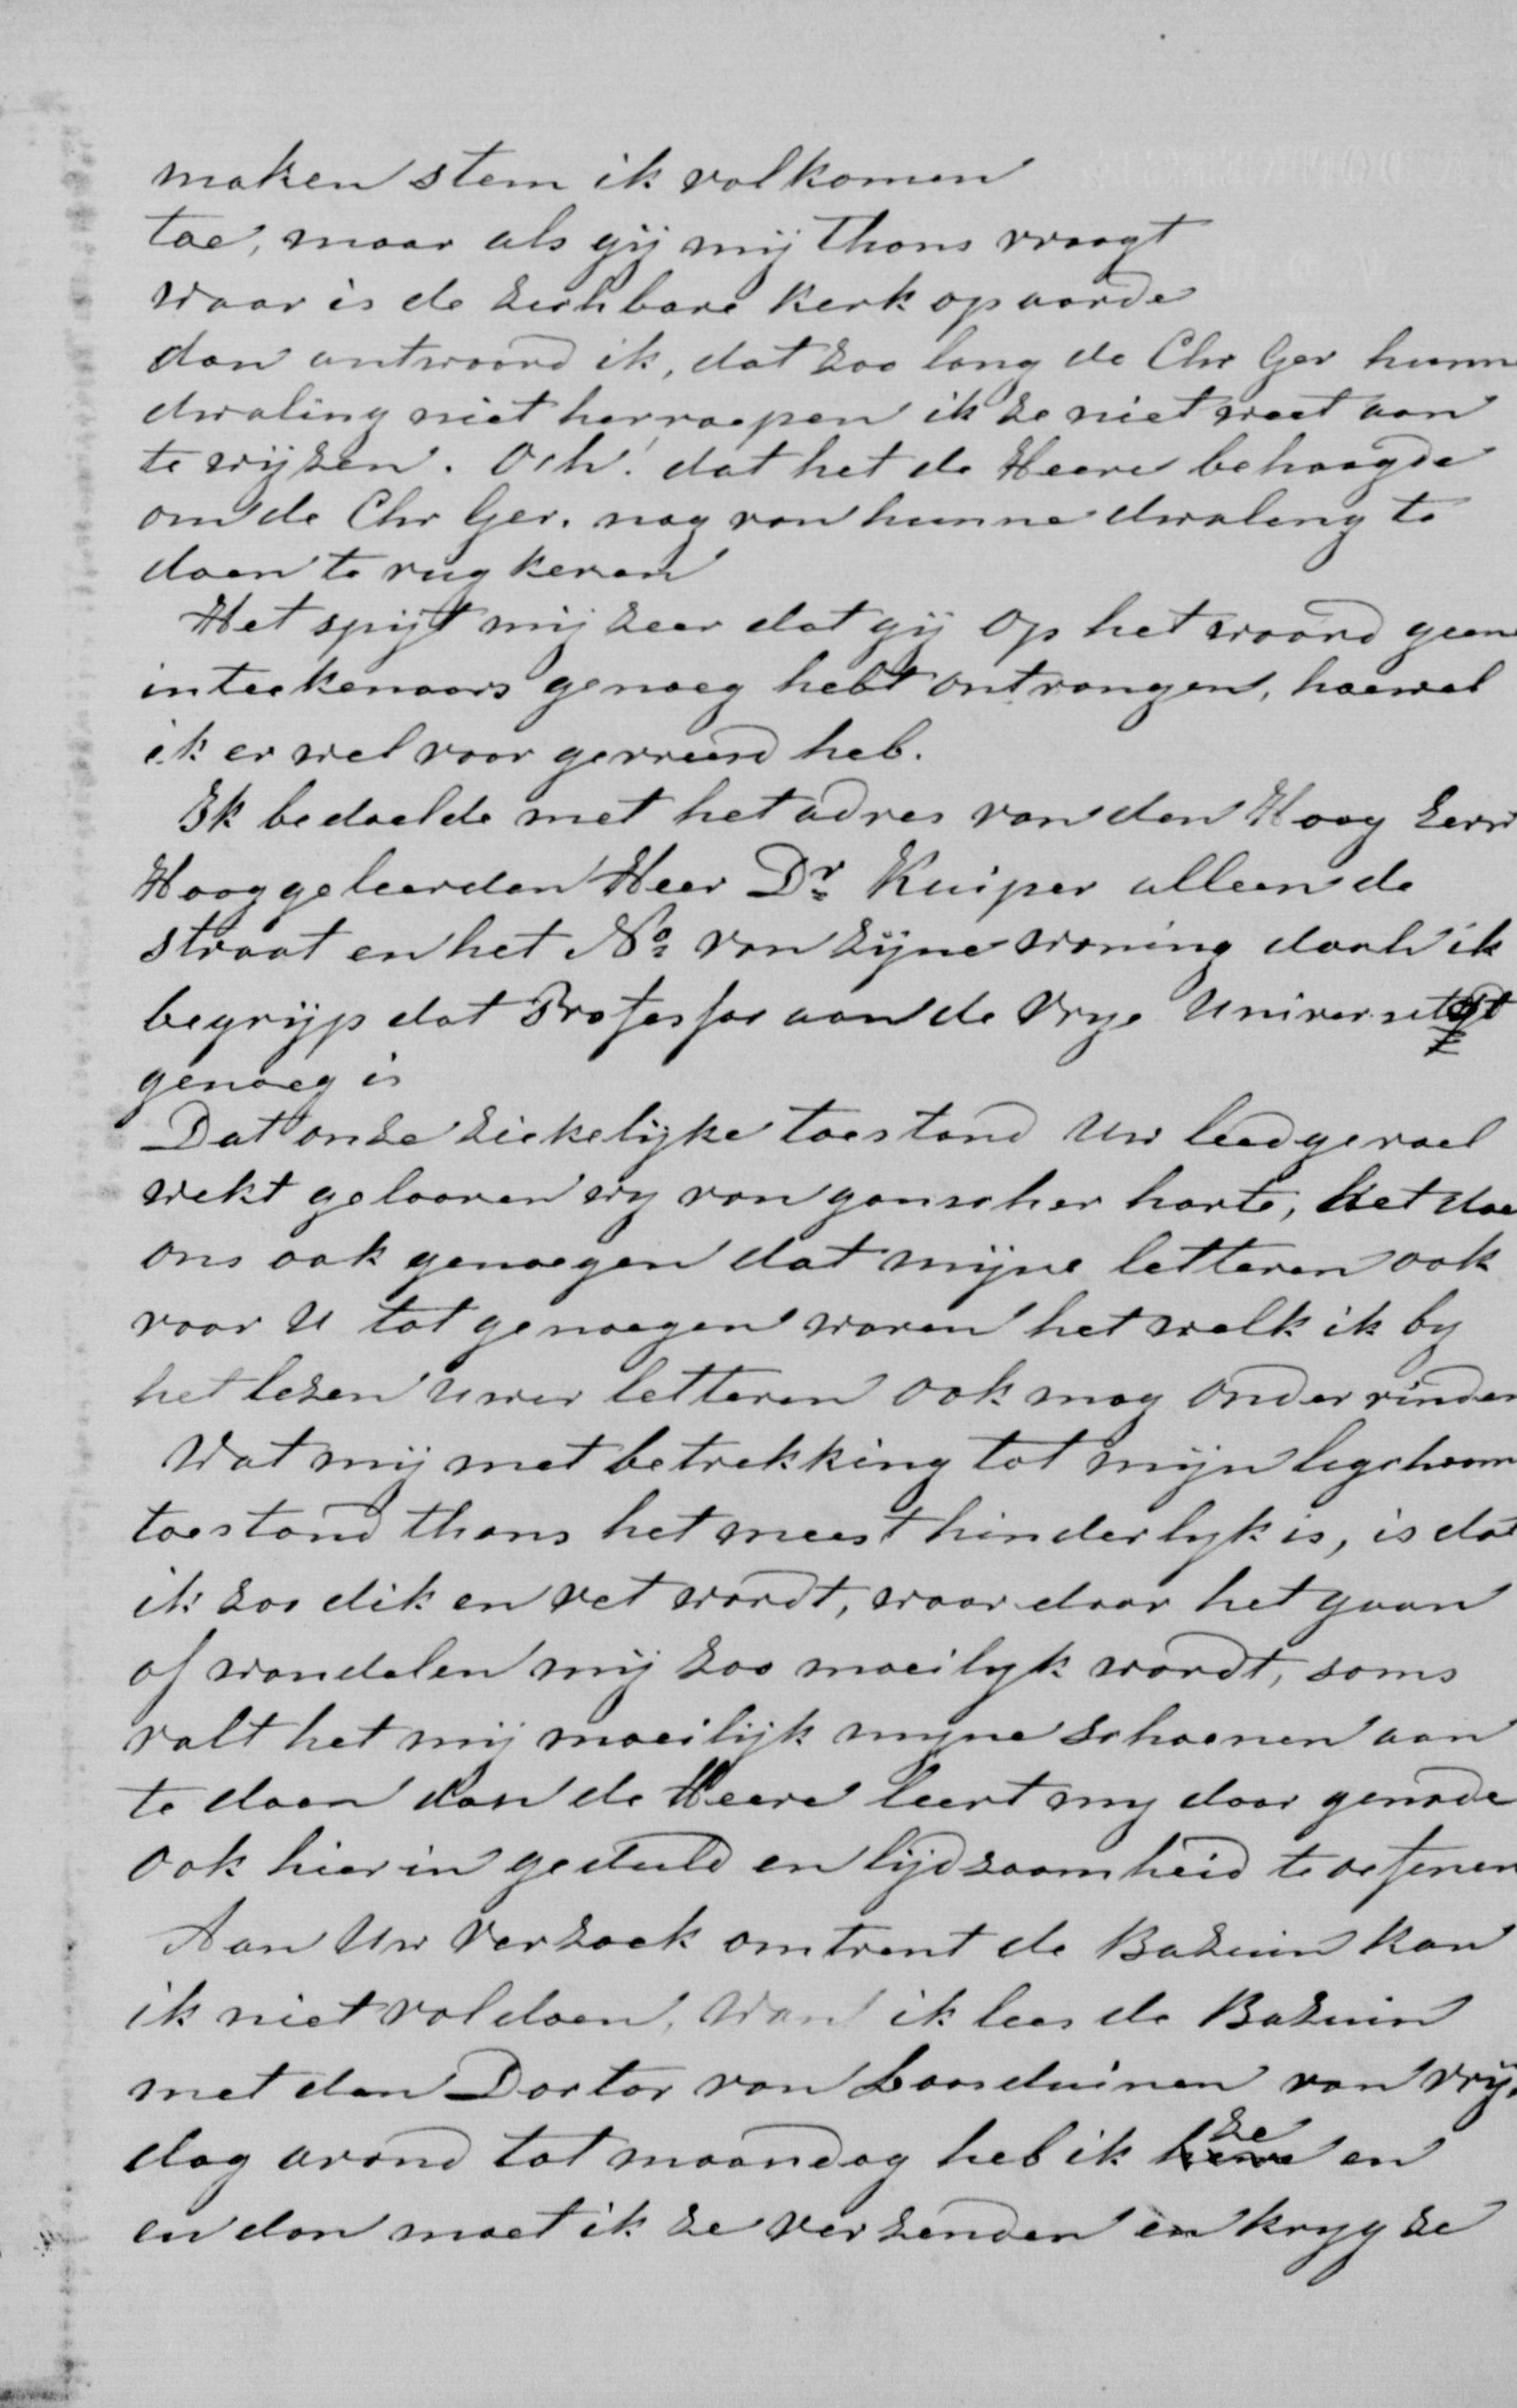 maken stem ik volkomen
toe, maar als gij mij thans vraagt
waar is de zichbare kerk op aarde
dan antwoord ik, dat zoo lang de Chr Ger hunn
dwaling niet herroepen ik ze niet weet aan
te wijzen. Och! dat het de Heere behaagde
om de Chr Ger. nog van hunne dwaling te
doen te rug keeren
Het spijt mij zeer dat gij op het woord geen
inteekenaars genoeg hebt ontvangen, hoewel
ik er wel voor gevreesd heb.
Ik bedoelde met het adres van den Hoog Eerw
Hooggeleerden Heer Dr Kuiper alleen de
straat en het No van zijne woning doch ik
begrijp dat Professor aan de Vrye Universiteit
genoeg is
Dat onze ziekelijke toestand Uw leedgevoel
wekt gelooven wy van ganscher harte, het doe
ons ook genoegen dat mijne letteren ook
voor U tot genoegen waren het welk ik by
het lezen uwer letteren ook mag ondervinden
Wat mij met betrekking tot mijn ligchaam
toestand thans het meest hinderlyk is, is dat
ik zoo dik en vet wordt, waardoor het gaan
of wandelen mij zoo moeilyk wordt, soms
valt het mij moeilijk myne schoenen aan
te doen dan de Heere leert my door genade
ook hierin geduld en lijdzaamheid te oefenen
Aan Uw verzoek omtrent de Bazuin kan
ik niet voldoen, want ik lees de Bazuin
met den Doctor van Loosduinen van vrij-
dag avond tot maandag heb ik ze en
en dan moet ik ze verzenden en kryg ze